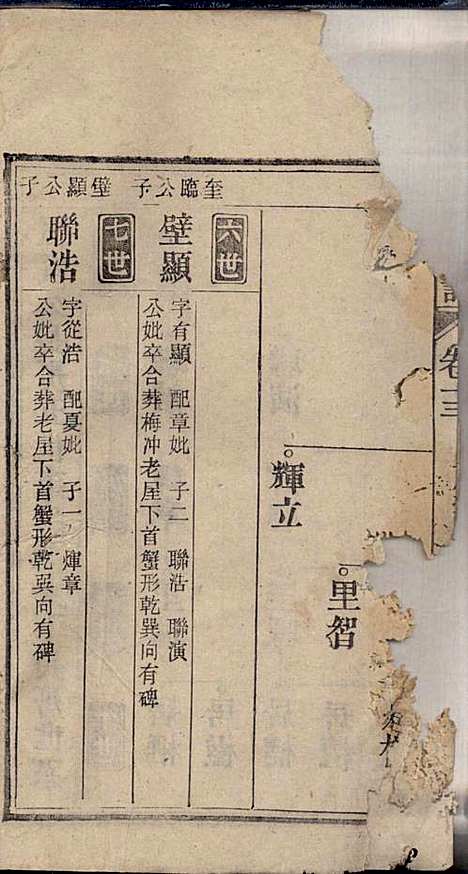 卷三
里智
輝立
奎臨公子
六世
壁顯
字有顯　配章妣　子二　聯浩　聯演
公妣卒合葬梅冲老屋下首蟹形乾巽向有碑
壁顯公子
七世
聯浩
字從浩　配夏妣　子一　煇章
公妣卒合葬老屋下首蟹形乾巽向有碑